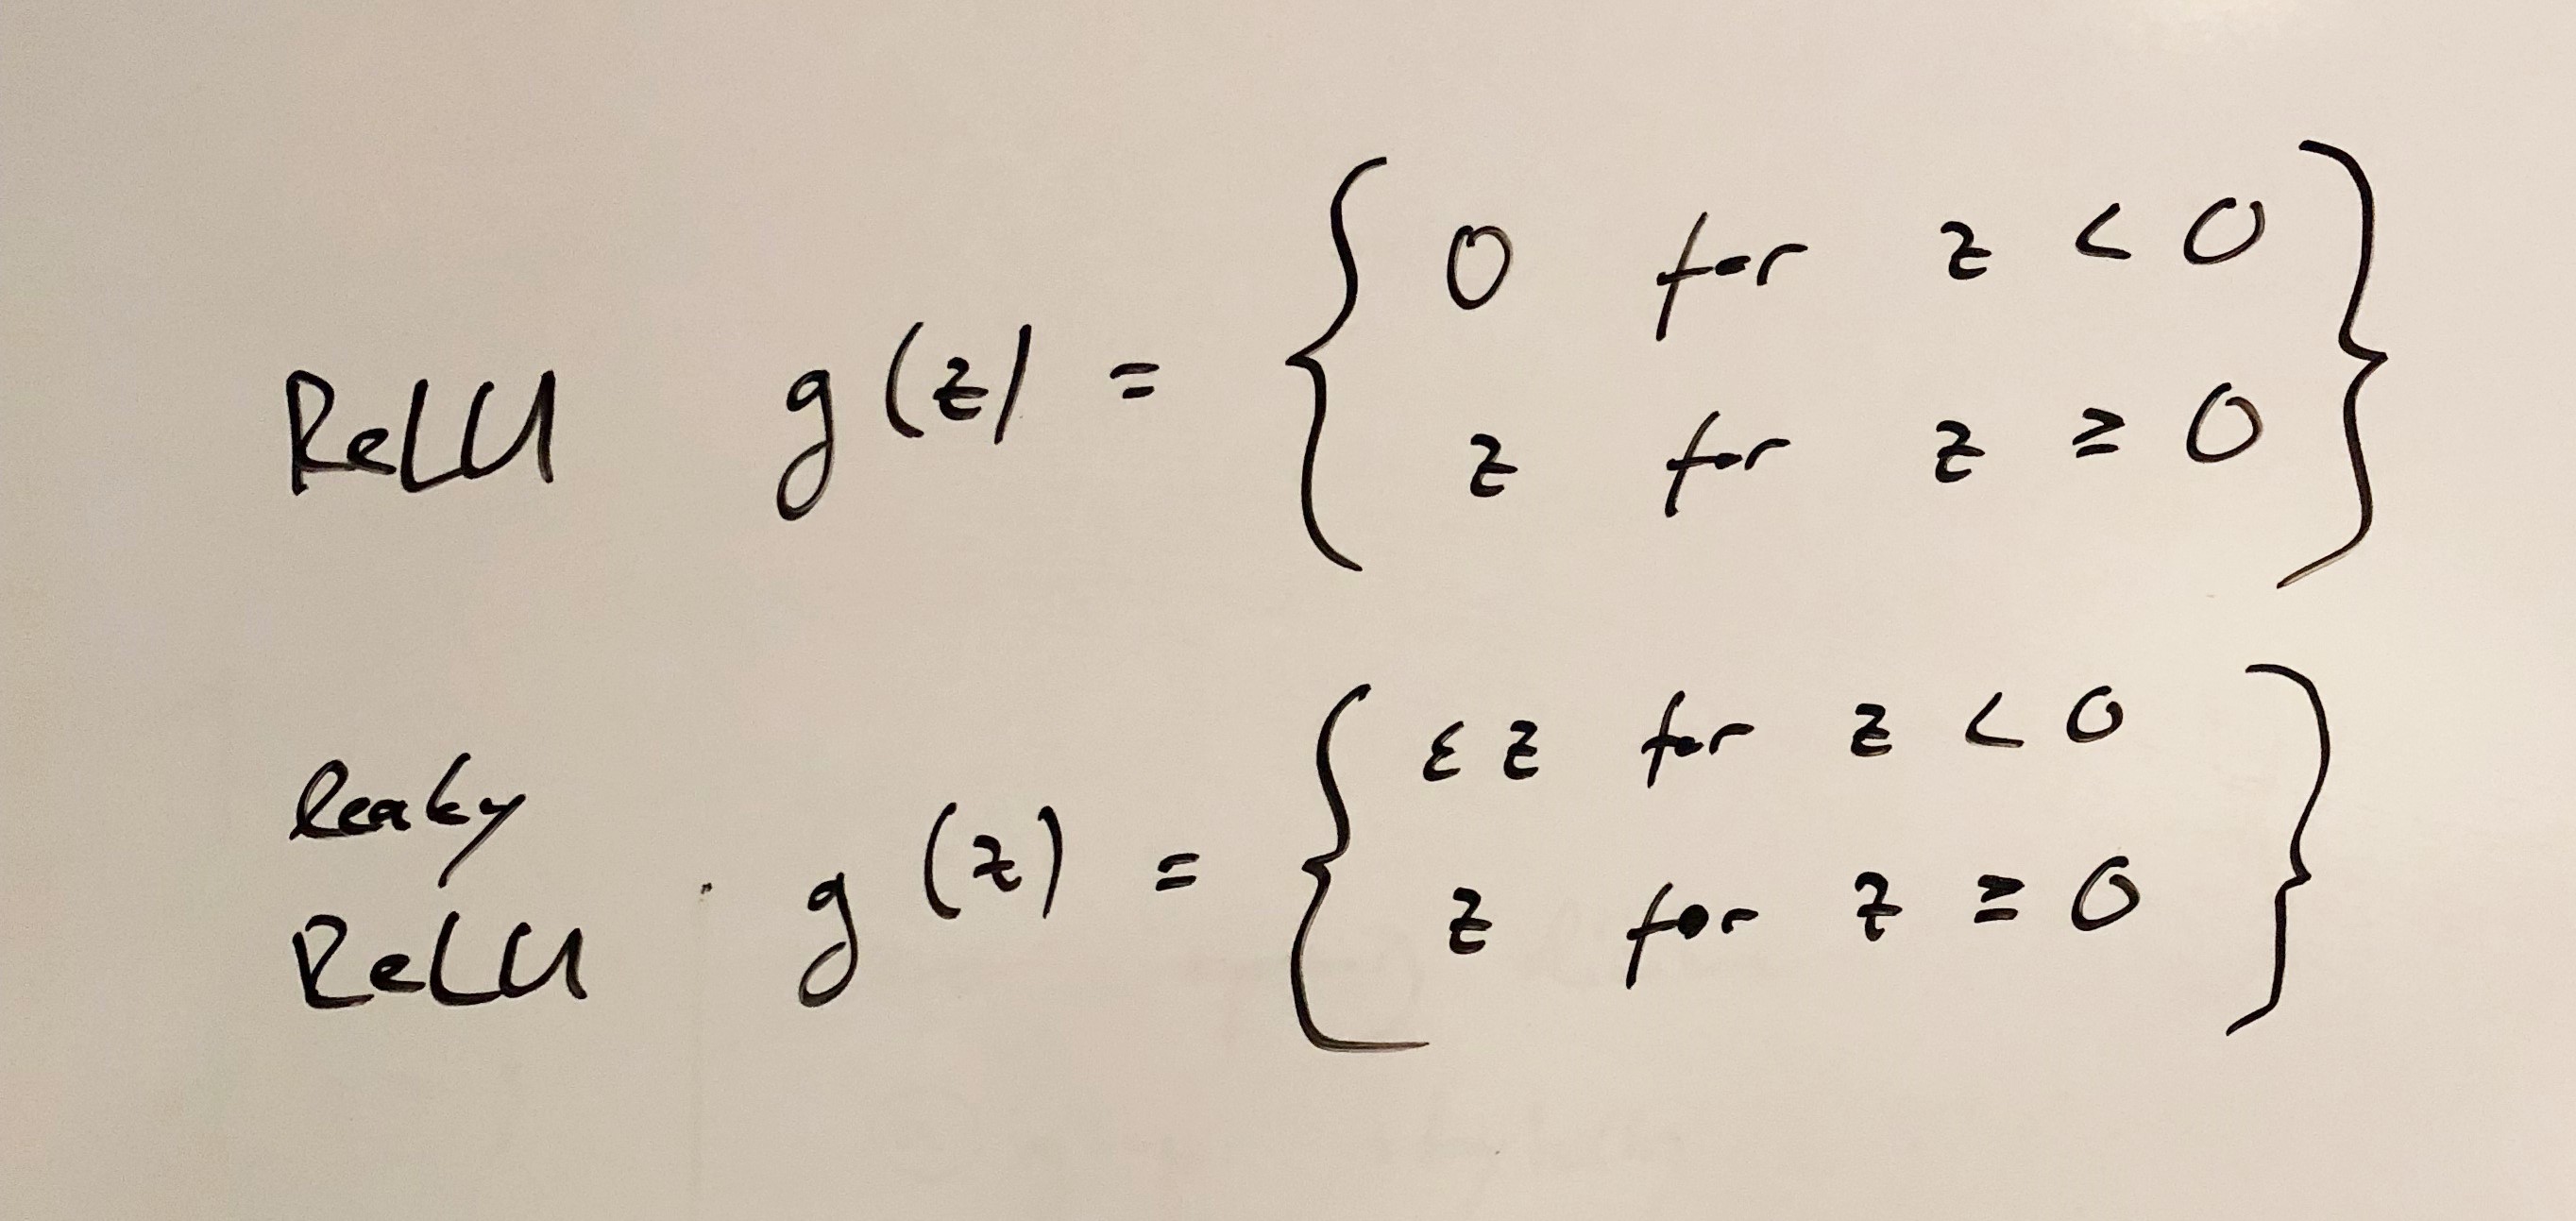 ReLU g(z) = { 0 for z < 0
z for z ≥ 0 }
leaky
ReLU g(z) = { εz for z < 0
z for z ≥ 0 }